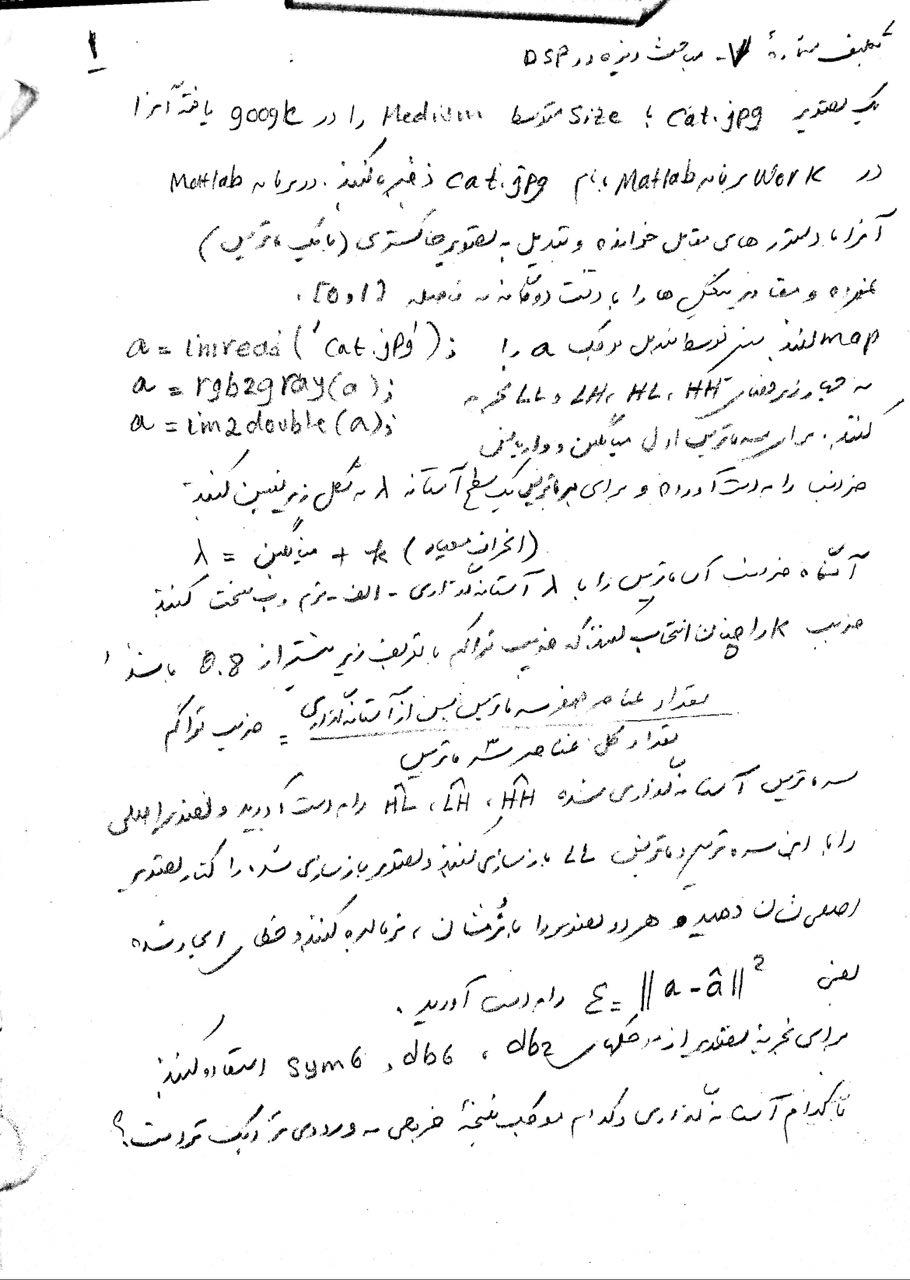 ۱
تکلیف شمارهٔ ۷- مباحث ویژه در DSP
یک تصویر cat.jpg با Size متوسط Medium را در google یافته آنرا
در work برنامه Matlab بنام cat.jpg ذخیره کنید. در برنامه Matlab
آنرا با دستورهای مقابل خوانده و تبدیل به تصویر خاکستری (با یک ماتریس)
نموده و مقادیر پیکسل ها را با دقت دوگانه به فاصله [0,1]
map کنید. سپس توسط تبدیل موجک a را
a = imread('cat.jpg');
a = rgb2gray(a);
a = im2double(a);
به چهار زیرفضای HH، HL، LH و LL تجزیه
کنید. برای سه ماتریس اول میانگین و واریانس
ضرایب را بدست آورده و برای هر ماتریس یک سطح آستانه λ به شکل زیر تعیین کنید:
(انحراف معیار) k + میانگین = λ
آنگاه ضرایب آن ماتریس را با λ آستانه‌گذاری - الف- نرم و ب- سخت کنید
ضریب k را چنان انتخاب کنید که ضریب تراکم با تعریف زیر بیشتر از 0.8 باشد
تعداد عناصر صفر سه ماتریس پس از آستانه گذاری
= ضریب تراکم
تعداد کل عناصر سه ماتریس
سه ماتریس آستانه گذاری شده ĤH، L̂H، ĤL را بدست آورید و تصویر اصلی
را با این سه ماتریس و ماتریس LL بازسازی کنید و تصویر بازسازی شده را کنار تصویر
اصلی نشان دهید و هر دو تصویر را با نُرمشان، نرمالیزه کنید و خطای ایجاد شده
یعنی ε = ||a - â||² را بدست آورید.
برای تجزیه تصویر از موجکهای db2، db6، sym6 استفاده کنید
با کدام آستانه گذاری و کدام موجک نتیجهٔ خروجی به ورودی نزدیک تر است؟